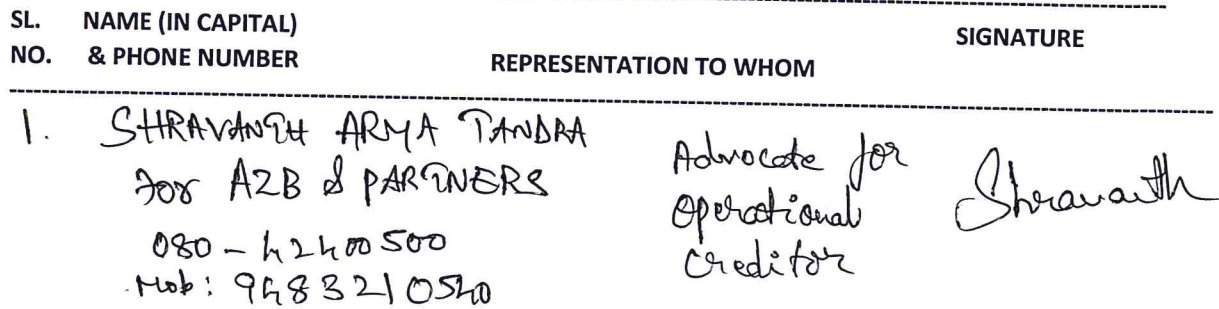 SL. NAME (IN CAPITAL) SIGNATURE
NO. & PHONE NUMBER REPRESENTATION TO WHOM
1. SHRAVANTH ARYA TANDRA
for AZB & PARTNERS
080 - 42400500
Mob: 9483210540
Advocate for
Operational
Creditor
Shravanth